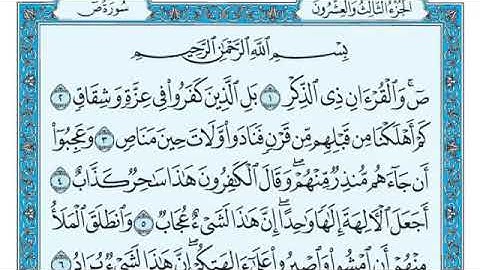 الجُزْءُ الثَّالِثُ وَالعِشْرُونَ سُورَةُ صٓ
بِسْمِ ٱللَّهِ ٱلرَّحْمَٰنِ ٱلرَّحِيمِ
صٓۚ وَٱلْقُرْءَانِ ذِى ٱلذِّكْرِ ١ بَلِ ٱلَّذِينَ كَفَرُوا۟ فِى عِزَّةٍ وَشِقَاقٍ ٢
كَمْ أَهْلَكْنَا مِن قَبْلِهِم مِّن قَرْنٍ فَنَادَوا۟ وَّلَاتَ حِينَ مَنَاصٍ ٣ وَعَجِبُوٓا۟
أَن جَآءَهُم مُّنذِرٌ مِّنْهُمْۖ وَقَالَ ٱلْكَٰفِرُونَ هَٰذَا سَٰحِرٌ كَذَّابٌ ٤
أَجَعَلَ ٱلْءَالِهَةَ إِلَٰهًا وَٰحِدًاۖ إِنَّ هَٰذَا لَشَىْءٌ عُجَابٌ ٥ وَٱنطَلَقَ ٱلْمَلَأُ
مِنْهُمْ أَنِ ٱمْشُوا۟ وَٱصْبِرُوا۟ عَلَىٰٓ ءَالِهَتِكُمْۖ إِنَّ هَٰذَا لَشَىْءٌ يُرَادُ ٦